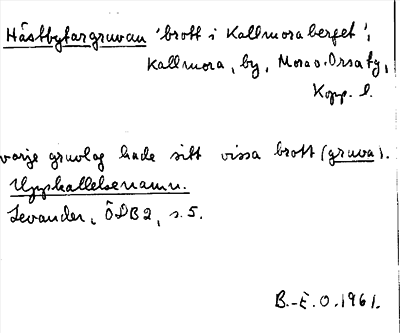 Hästbytargruvan 'brott i Kallmoraberget',
Kallmora, by, Mora o. Orsa tg,
Kopp. l.
varje gruvlag hade sitt vissa brott (gruva).
Uppkallelsenamn.
Levander, ÖDB2, s. 5.
B.-E. O. 1961.